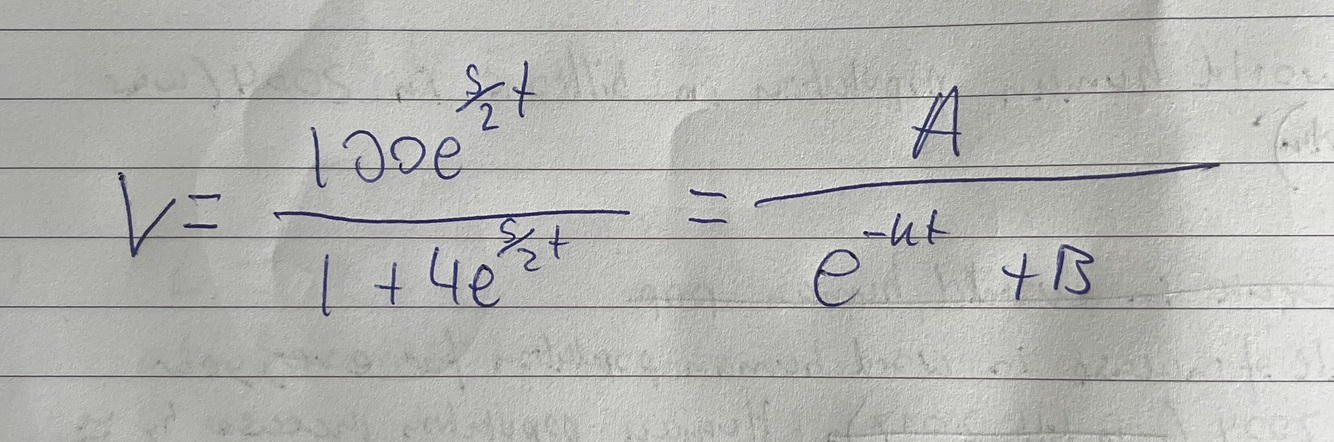 V = \frac{100e^{\frac{5}{2}t}}{1 + 4e^{\frac{5}{2}t}} = \frac{A}{e^{-kt} + B}